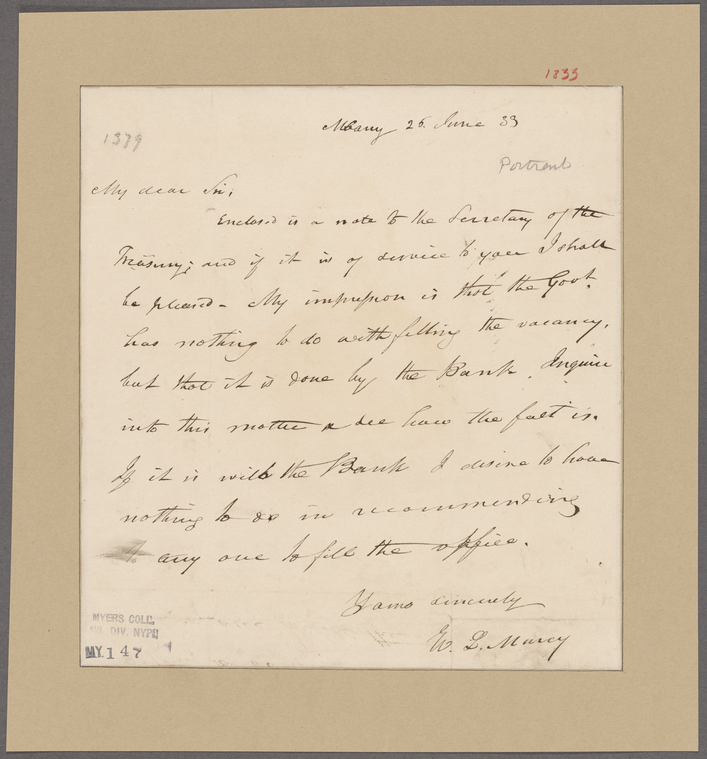 1833
Albany 26 June 33
1379
Portrait
My dear Sir;
Enclosed is a note to the Secretary of the
Treasury; and if it is of service to you I shall
be pleased - My impression is that the Govt.
has nothing to do with filling the vacancy,
but that it is done by the Bank. Inquire
into this matter & see how the fact is.
If it is with the Bank I desire to have
nothing to do in recommending
any one to fill the office.
Yours sincerely
W. L. Marcy
MYERS COLL.
DIV. NYPL
MY. 147